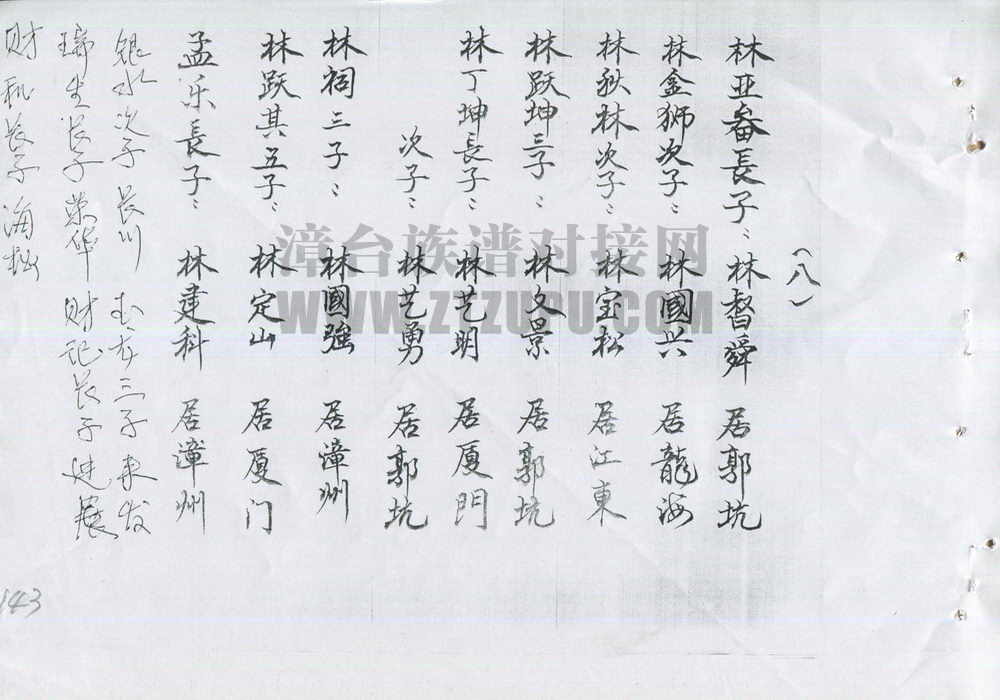 (八)
林亚畨長子: 林督舜 居郭坑
林金狮次子: 林國兴 居龍海
林秋林次子: 林宝松 居江東
林跃坤三子: 林文景 居郭坑
林丁坤長子: 林艺明 居厦門
次子: 林艺勇 居郭坑
林祠三子: 林國強 居漳州
林跃其五子: 林定山 居厦门
孟乐長子: 林建科 居漳州
银水次子 长川 三子 来发
瑞生长子 荣华 财记长子 进展
财礼长子 海松
143
漳台族谱对接网
WWW.ZTZUPU.COM